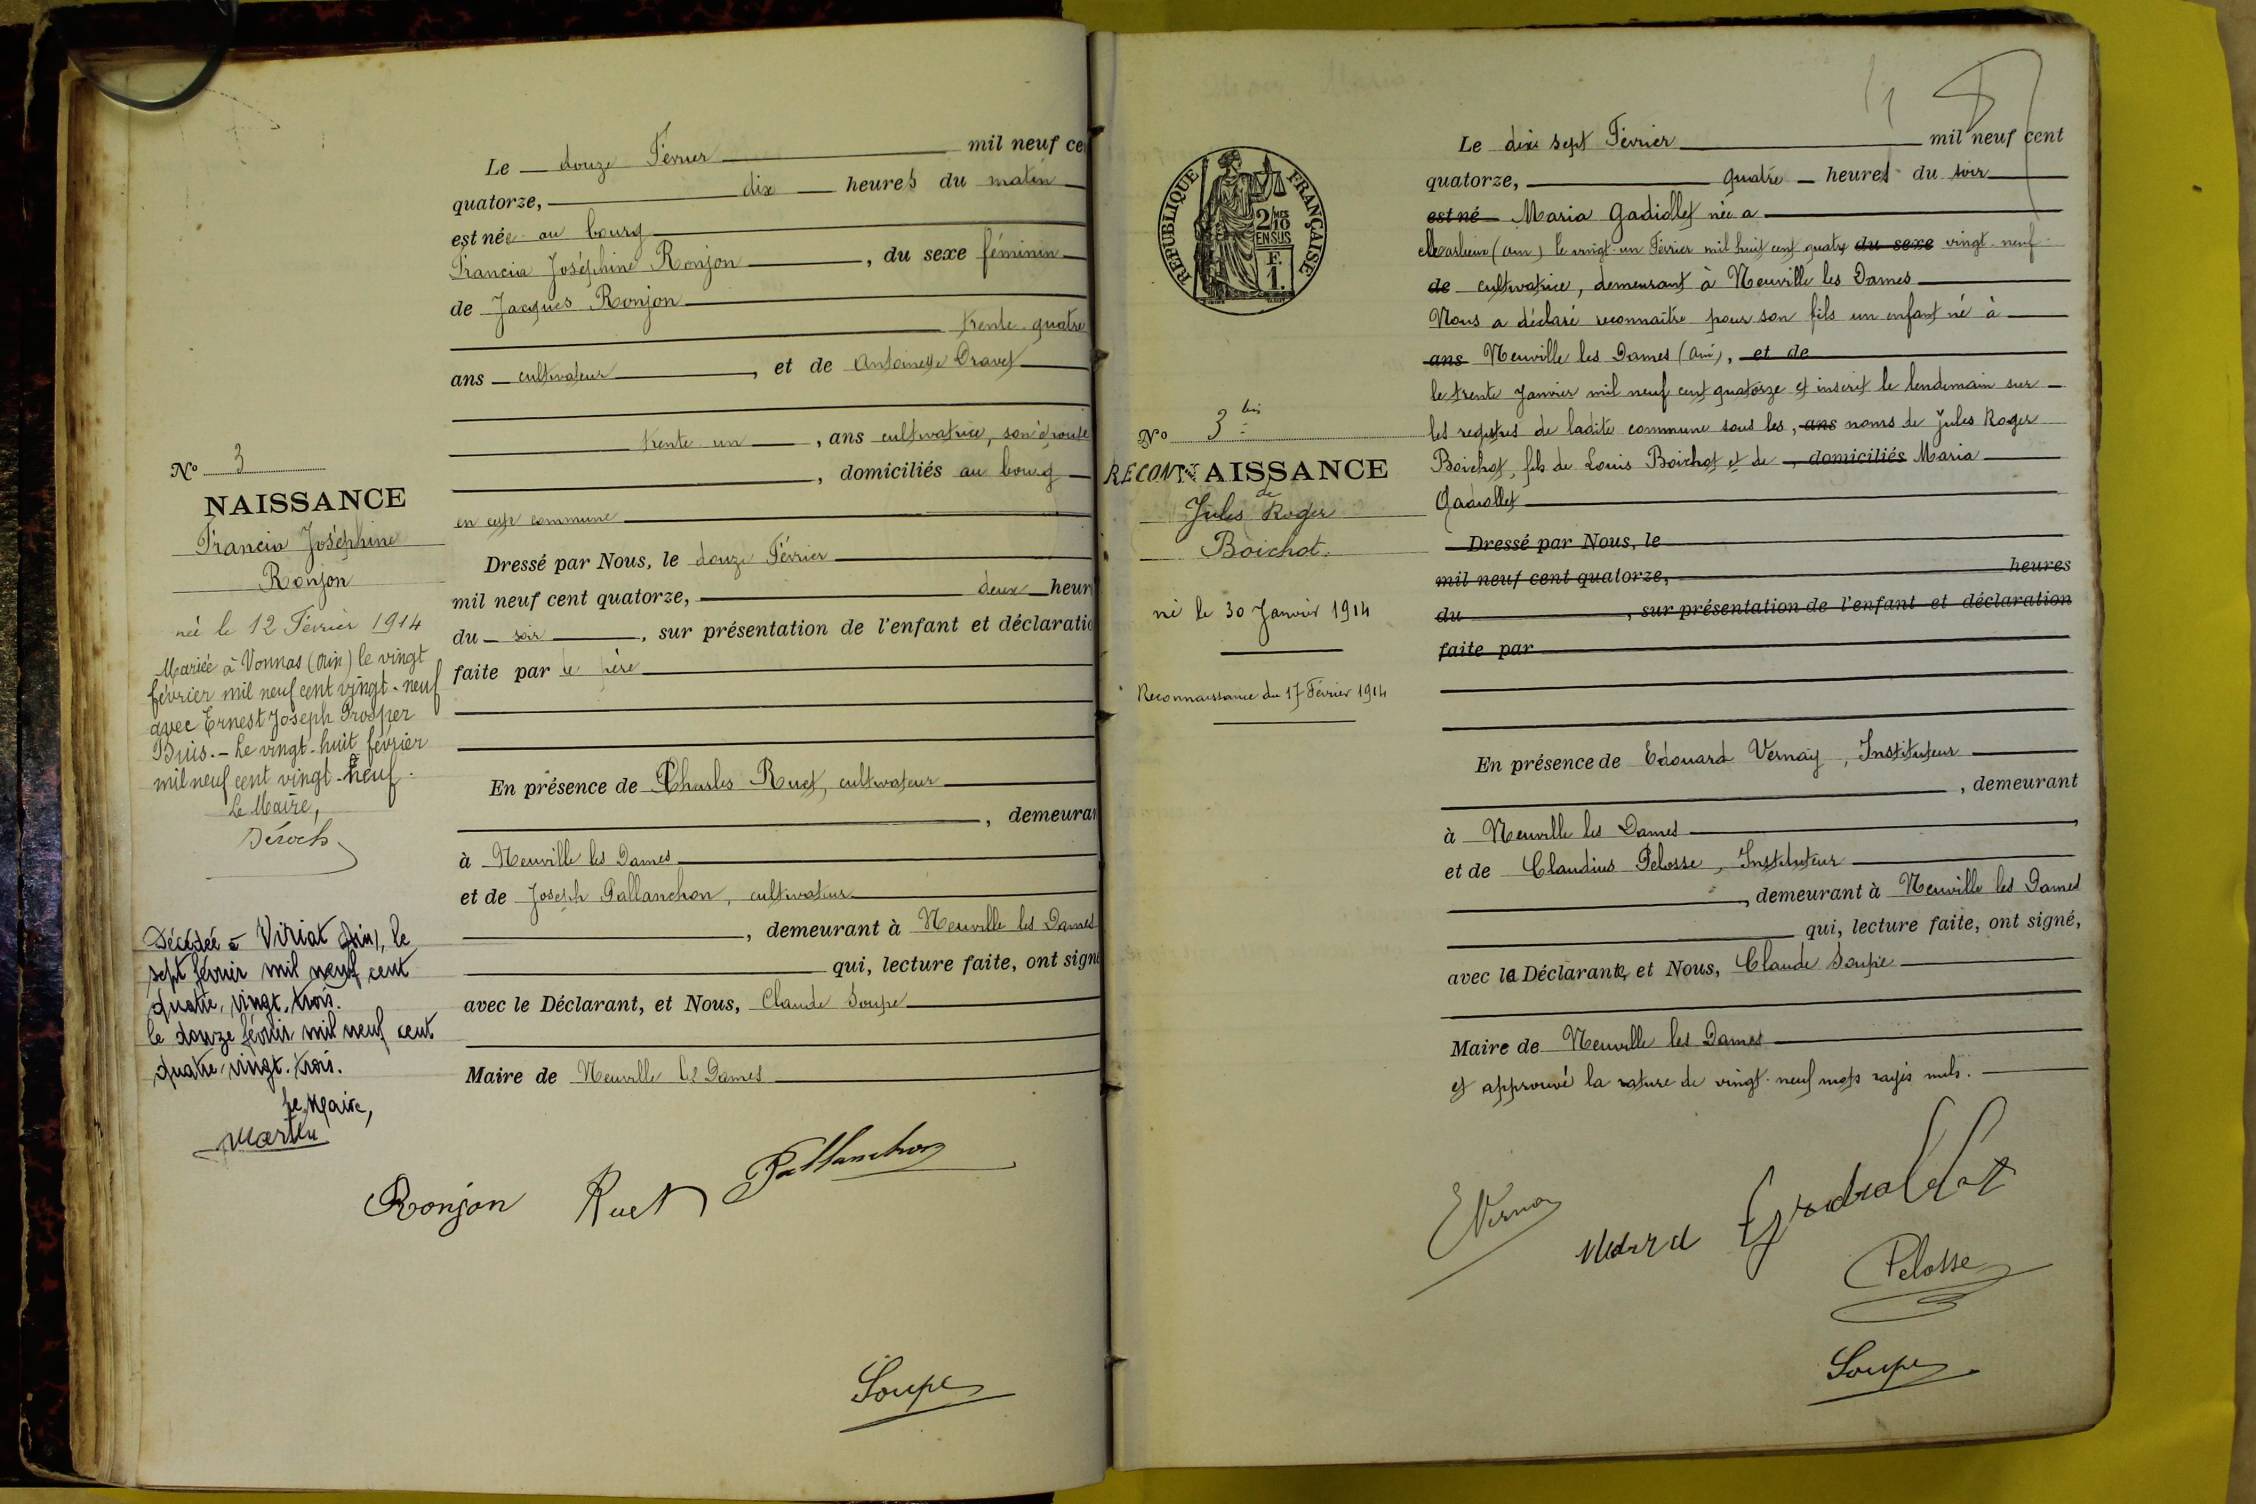 N° 3
NAISSANCE
Francia Joséphine
Ronjon
née le 12 Février 1914
Mariée à Vonnas (Ain) le vingt
février mil neuf cent vingt-neuf
avec Ernest Joseph Prosper
Buis. - Le vingt-huit février
mil neuf cent vingt-neuf.
Le Maire,
Décédée à Viriat (Ain), le
sept février mil neuf cent
quatre-vingt-trois.
le douze février mil neuf cent
quatre-vingt-trois.
Le Maire,
Le douze Février mil neuf ce
quatorze, dix heures du matin
est née au bourg
Francia Joséphine Ronjon, du sexe féminin
de Jacques Ronjon
trente-quatre
ans cultivateur, et de Antoinette Dravet
trente un, ans cultivatrice, son épouse
, domiciliés au bourg
en cette commune
Dressé par Nous, le douze Février
mil neuf cent quatorze, deux heur
du soir, sur présentation de l'enfant et déclaratio
faite par le père
En présence de Charles Ruet, cultivateur
, demeuran
à Neuville les Dames
et de Joseph Pallanchon, cultivateur
, demeurant à Neuville les Dames
qui, lecture faite, ont signé
avec le Déclarant, et Nous, Claude Soupe
Maire de Neuville les Dames
Ronjon Ruet Pallanchon
Soupe
REPUBLIQUE FRANÇAISE
2/10 MES
EN SUS
F.
1.
N° 3 bis
RECONNAISSANCE
de
Jules Roger
Boichot.
né le 30 Janvier 1914
Reconnaissance du 17 Février 1914
Le dix sept Février mil neuf cent
quatorze, quatre heures du soir
est né Maria Gadiollet née a
(Ain) le vingt-un Février mil huit cent quatre du sexe vingt-neuf
de cultivatrice, demeurant à Neuville les Dames
Nous a déclaré reconnaitre pour son fils un enfant né à
ans Neuville les Dames (Ain), et de
le trente Janvier mil neuf cent quatorze et inscrit le lendemain sur
les registres de ladite commune sous les, ans noms de Jules Roger
Boichot, fils de Louis Boichot et de, domiciliés Maria
Gadiollet
Dressé par Nous, le
mil neuf cent quatorze, heures
du , sur présentation de l'enfant et déclaration
faite par
En présence de Edouard Vernay, Instituteur
, demeurant
à Neuville les Dames
et de Claudius Pelosse, Instituteur
, demeurant à Neuville les Dames
qui, lecture faite, ont signé,
avec la Déclarante, et Nous, Claude Soupe
Maire de Neuville les Dames
et approuvé la rature de vingt-neuf mots rayés nuls.
E Vernay Maria Gadiollet
Pelosse
Soupe